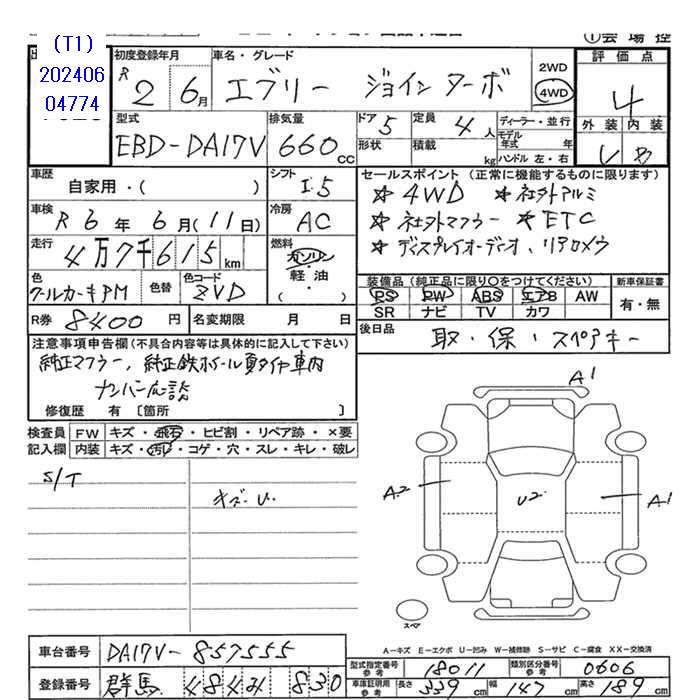 (T1)
202406
04774
①会場控
初度登録年月
R2 6月
車名・グレード
エブリー ジョインターボ
2WD
4WD
評価点
4
外装 内装
型式
EBD-DA17V
排気量
660cc
ドア
5
形状
定員
4人
積載 kg
ディーラー・並行
モデル
年式 年
ハンドル 左・右
車歴
自家用・( )
シフト
I.5
車検
R6年6月(11日)
冷房
AC
走行
4万7千615km
燃料
ガソリン
軽・油
( )
セールスポイント (正常に機能するものに限ります)
☆4WD ☆社外アルミ
☆社外マフラー ☆ETC
☆ディスプレイオーディオ、リアカメラ
色
クールカーキPM
色替
色コード
ZVD
装備品 (純正品に限り〇をつけてください)
PS PW ABS エアB AW
SR ナビ TV カワ
新車保証書
有・無
R券 8400円
名変期限 月 日
後日品
取・保・スペアキー
注意事項申告欄(不具合内容等は具体的に記入して下さい)
純正マフラー、純正鉄ホイール夏タイヤ車内
ナンバー応談
修復歴 有 [箇所 ]
検査員 FW キズ・飛石・ヒビ割・リペア跡・×要
記入欄 内装 キズ・汚レ・コゲ・穴・スレ・キレ・破レ
S/T
キズ・U.
A1
A2
U2
A1
スペア
A-キズ E-エクボ U-凹み W-補修跡 S-サビ C-腐食 XX-交換済
車台番号 DA17V-857555
登録番号 群馬 484 830
型式指定番号
参考
18011
類別区分番号
参考
0606
車庫証明用
参考
長さ 339cm 幅 147cm 高さ 189cm